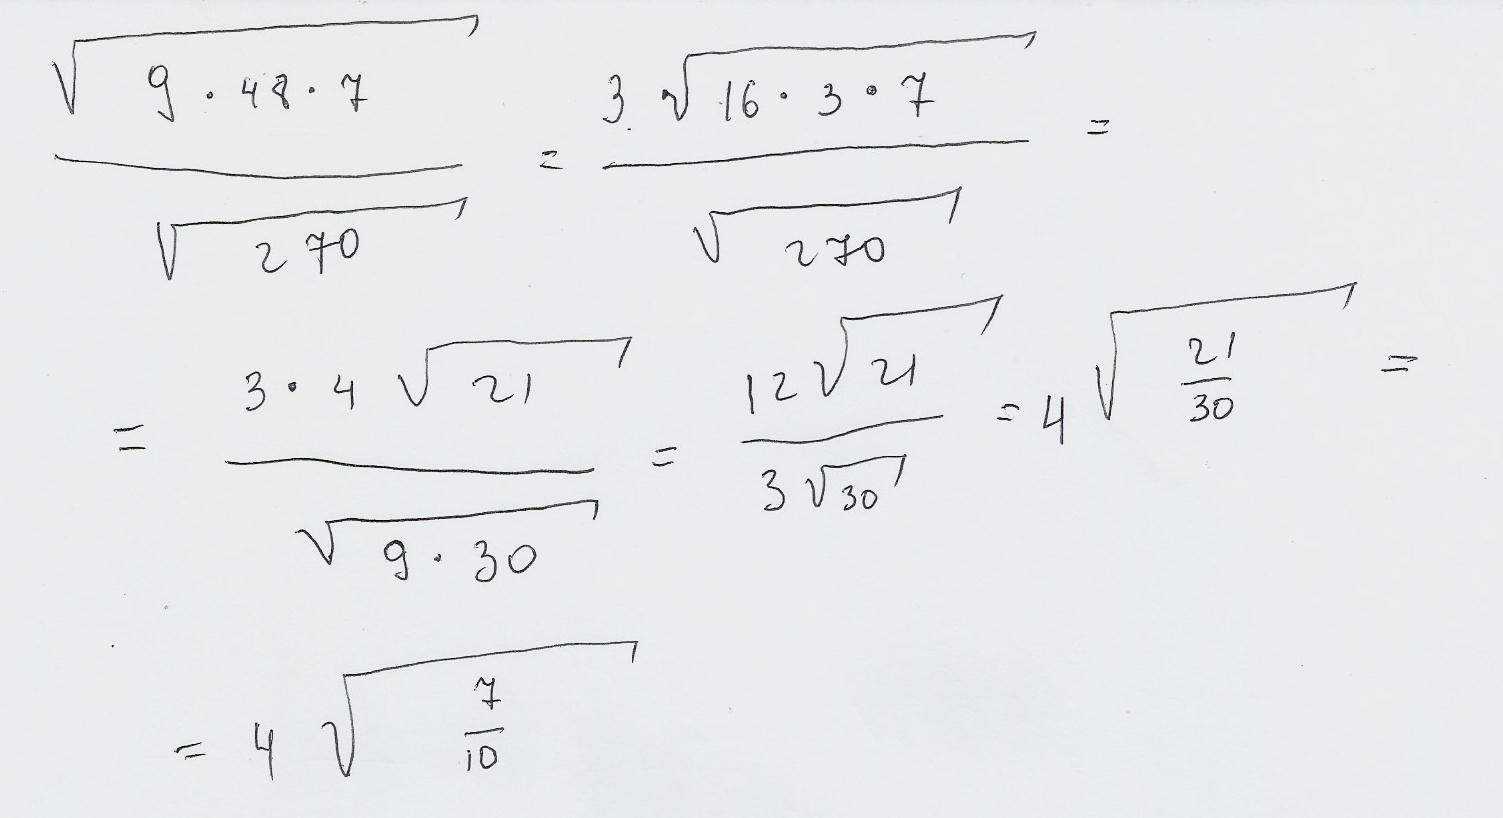 √(9 · 48 · 7) / √(270) = 3 √(16 · 3 · 7) / √(270) =
= 3 · 4 √(21) / √(9 · 30) = 12 √(21) / 3 √(30) = 4 √(21/30) =
= 4 √(7/10)